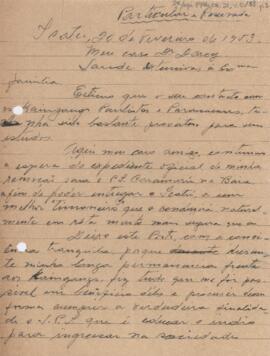 Particular e Reservada
Iratu, 20 de Fevereiro de 1953.
Meu caro Dr Darcy
Saúde extensivos à Exma
família
Estimo que o seu contacto com
os Kaingangs Paulistas e Paranaenses, te-
nha sido bastante proveitoso para seus
estudos.
Aqui meu caro amigo, continuamos
a espera do expediente oficial de minha
remoção para o P.I.
afim de poder entregar o Iratu, a um
melhor timoneiro que o conduzirá natural-
mente em rota muito mais segura que eu
Deixo este Posto, com a consci-
encia tranquila porque duran-
te minha longa permanencia frente
aos Kaingangs, fiz tudo que me foi pos-
sivel em beneficio deles e procurei dar
forma sempre a verdadeira finalida-
de o S.P.I. que é educar o indio
para ingressar na sociedade